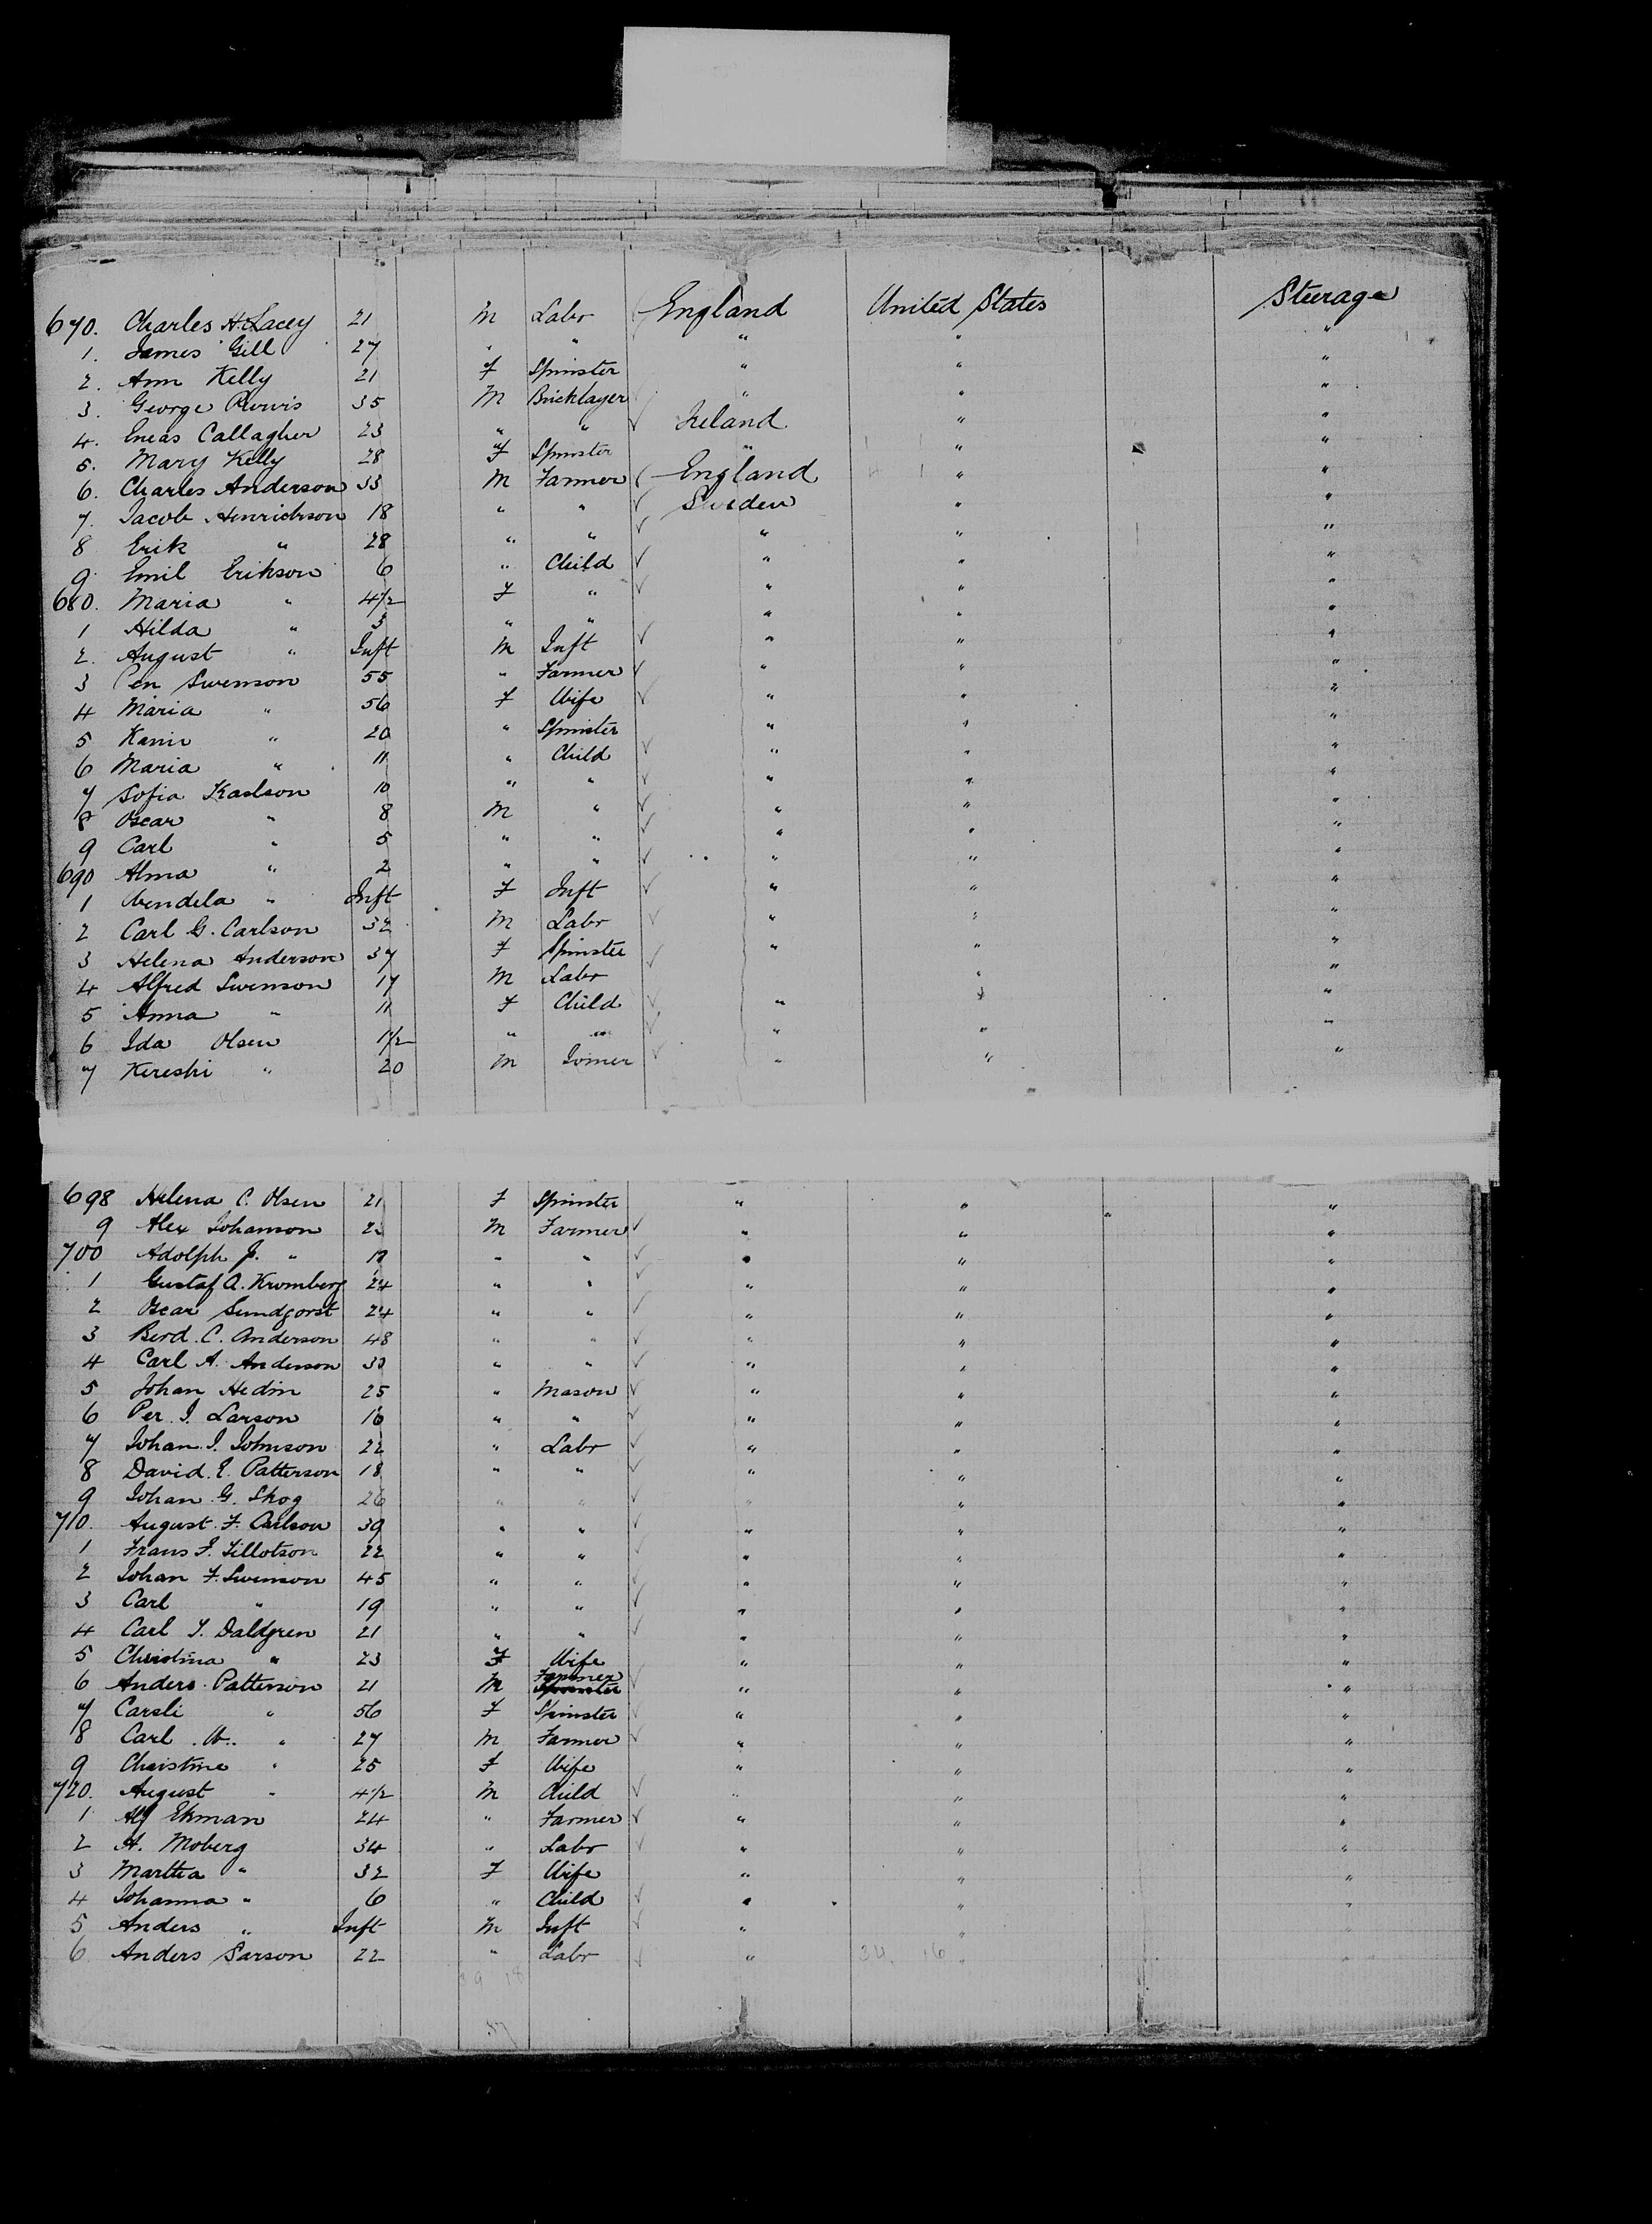 670. Charles H. Lacey 21 M Labr England United States Steerage
1. James Gill 27 " " " " "
2. Ann Kelly 21 F Spinster " " "
3. George Purvis 35 M Bricklayer " " "
4. Eneas Callagher 23 " " Ireland " "
5. Mary Kelly 28 F Spinster " " "
6. Charles Anderson 33 M Farmer England " "
7. Jacob Henrickson 18 " " Sweden " "
8 Erik " 28 " " " " "
9 Emil Erikson 6 " Child " " "
680. Maria " 4 1/2 F " " " "
1 Hilda " 3 " " " " "
2. August " Inft M Inft " " "
3 Pen Swenson 55 " Farmer " " "
4 Maria " 56 F Wife " " "
5 Karin " 20 " Spinster " " "
6 Maria " 11 " Child " " "
7 Sofia Karlson 10 " " " " "
8 Oscar " 8 M " " " "
9 Carl " 5 " " " " "
690 Alma " 2 " " " " "
1 Wendela " Inft F Inft " " "
2 Carl G. Carlson 32 M Labr " " "
3 Helena Anderson 37 F Spinster " " "
4 Alfred Swenson 17 M Labr " "
5 Anna " 11 F Child " " "
6 Ida Olsen 1 1/2 " " " " "
7 Kereshi " 20 M Joiner " " "
698 Helena C. Olsen 21 F Spinster " " "
9 Alex Johanson M Farmer " " "
700 Adolph J. " " " " " "
1 Gustaf A. Kromberg 24 " " " " "
2 Oscar Sundgorst 24 " " " " "
3 Berd. C. Anderson 48 " " " " "
4 Carl A. Anderson 30 " " " " "
5 Johan Hedin 25 " Mason " " "
6 Per. J. Larson 16 " " " " "
7 Johan. J. Johnson 22 " Labr " " "
8 David. E. Patterson 18 " " " " "
9 Johan G. Skog 26 " " " " "
710. August. F. Carlson 39 " " " " "
1 Frans F. Tillotson 22 " " " " "
2 Johan F. Swenson 45 " " " " "
3 Carl " 19 " " " " "
4 Carl J. Daldgren 21 " " " " "
5 Christina " 23 F Wife " " "
6 Anders Patterson 21 M Farmer " " "
7 Carsli " 56 F Spinster " " "
8 Carl. W. " 27 M Farmer " " "
9 Christine " 25 F Wife " " "
720. August " 4 1/2 M Child " " "
1 Alf Ekman 24 " Farmer " " "
2 A. Moberg 34 " Labr " " "
3 Martha " 32 F Wife " " "
4 Johanna " 6 " Child " " "
5 Anders " Inft M Inft " " "
6 Anders Larson 22 " Labr " 34 16 " "